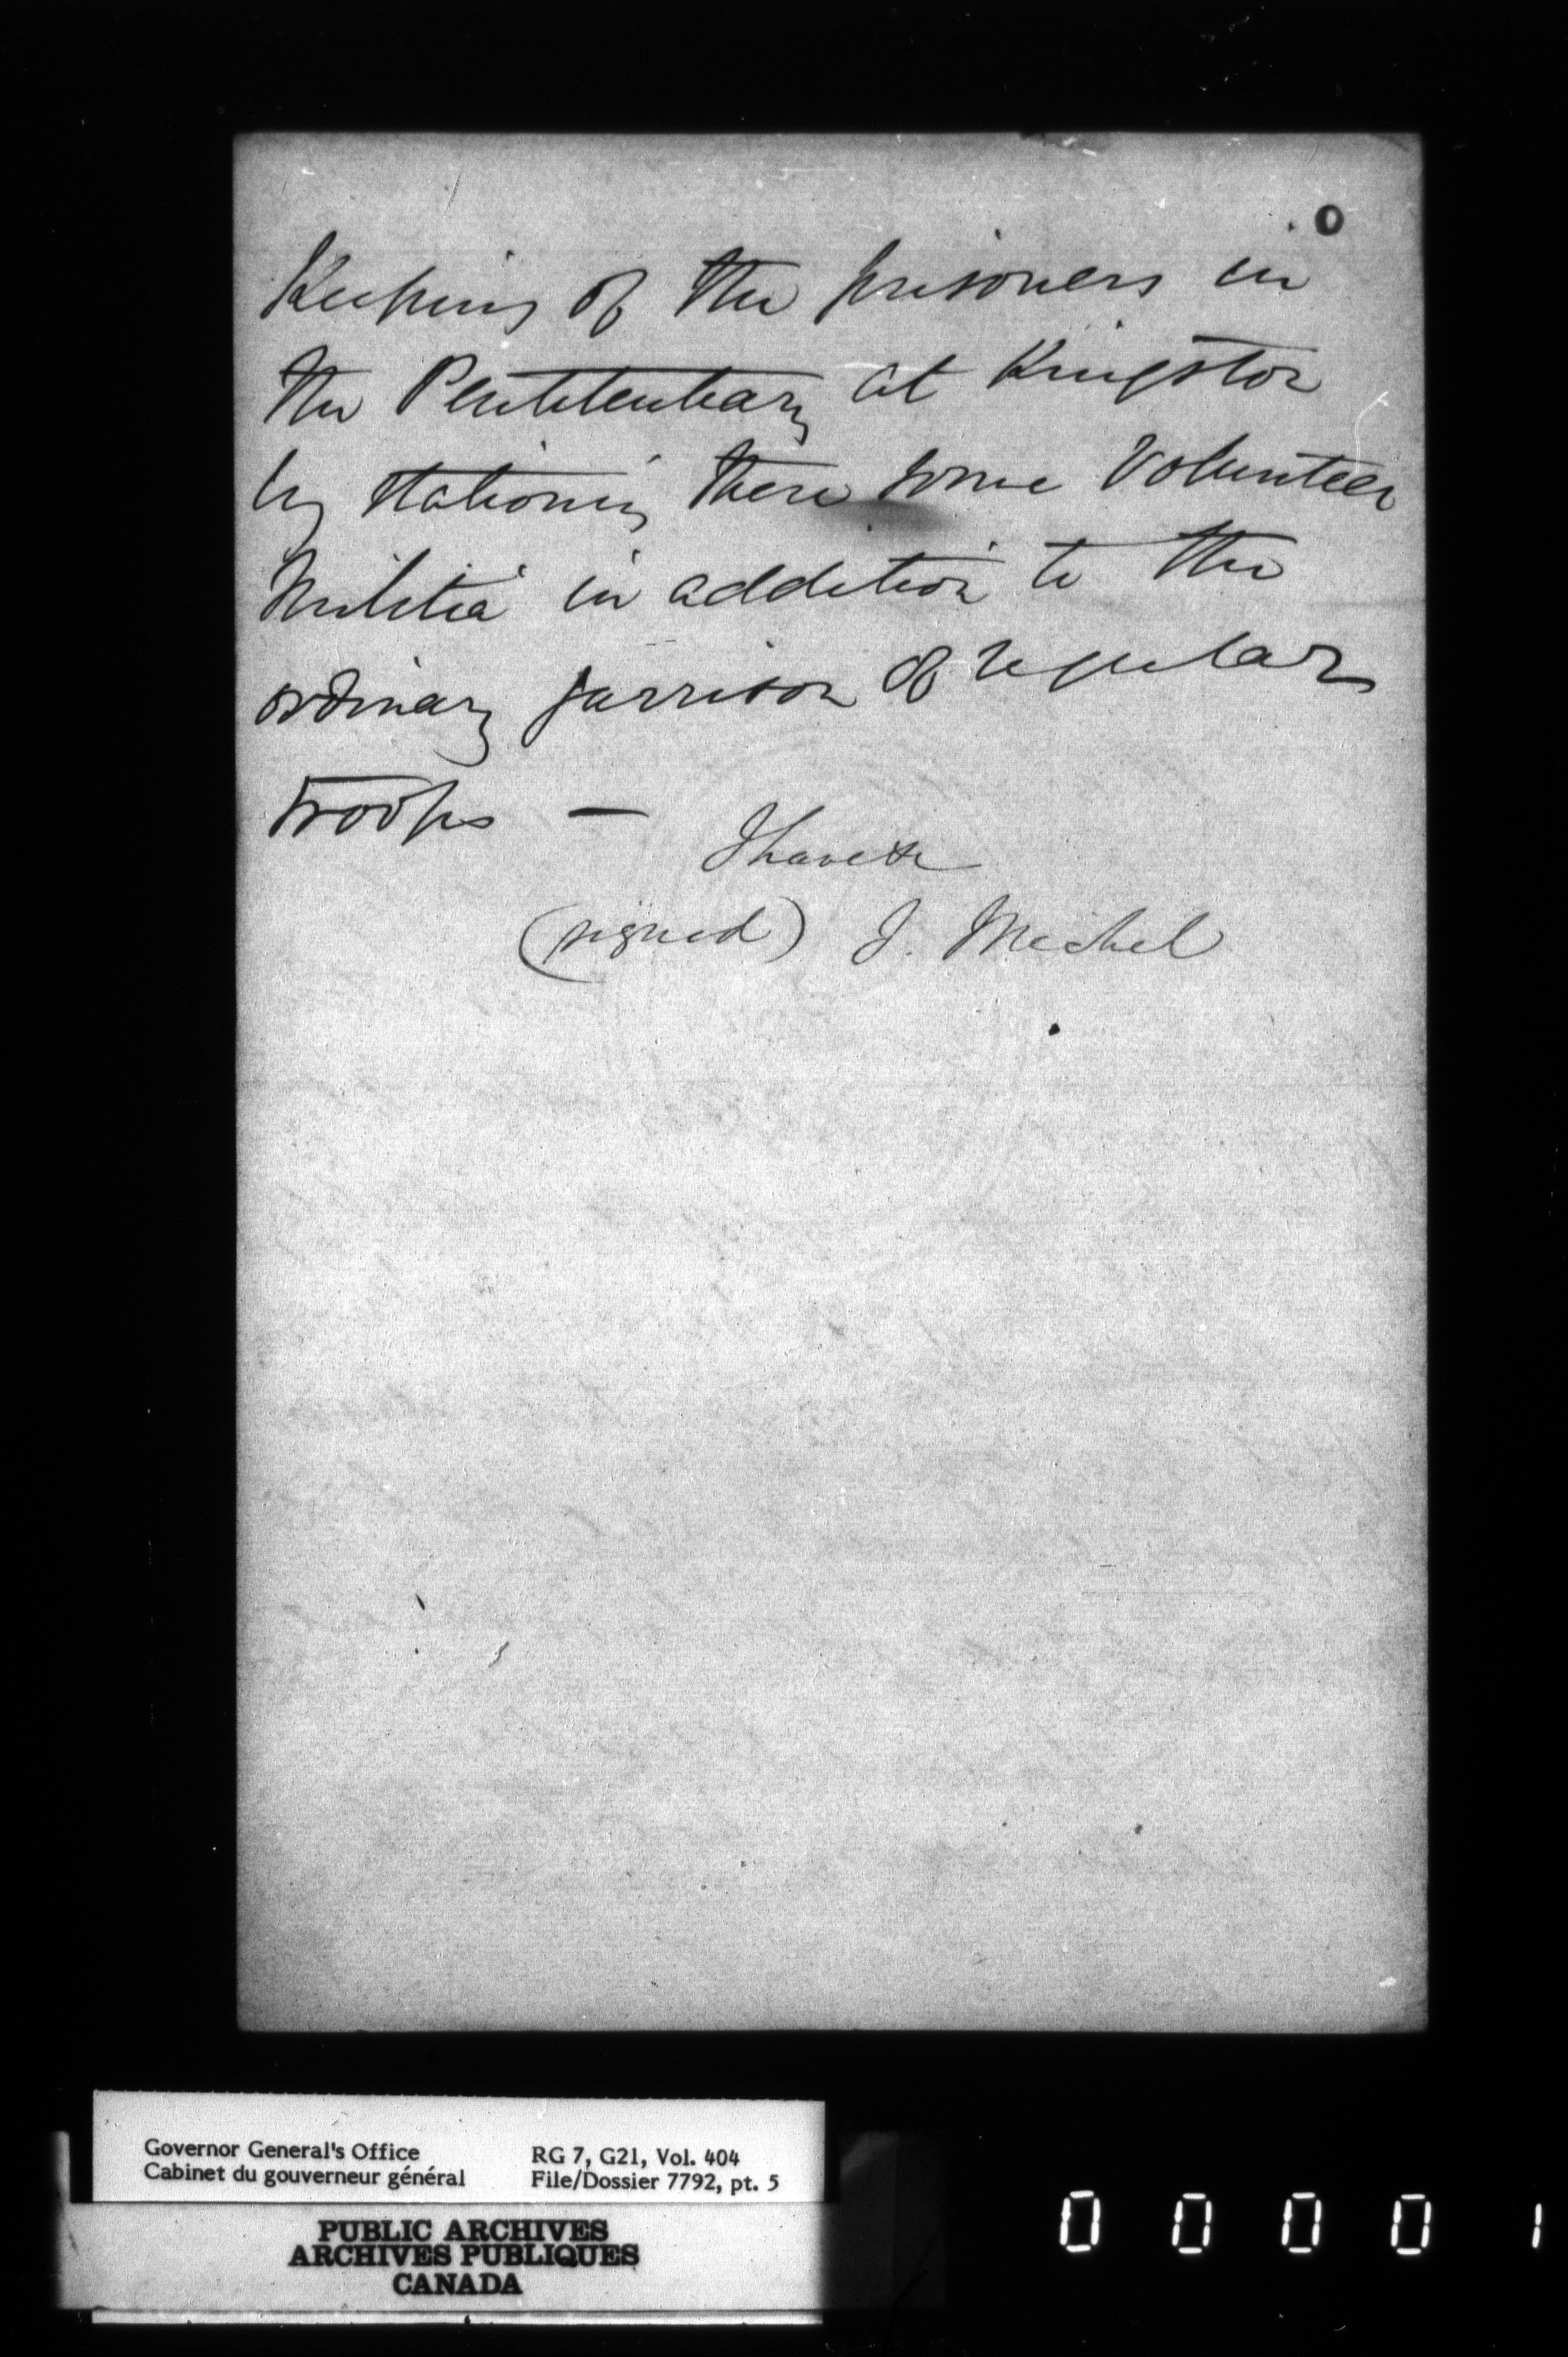 0
Keeping of the prisoners in
the Penitentiary at Kingston
by stationing there some Volunteer
Militia in addition to the
ordinary garrison of regular
troops —
I have &c
(signed) J. Michel
Governor General's Office
Cabinet du gouverneur général
RG 7, G21, Vol. 404
File/Dossier 7792, pt. 5
PUBLIC ARCHIVES
ARCHIVES PUBLIQUES
CANADA
0 0 0 0 1